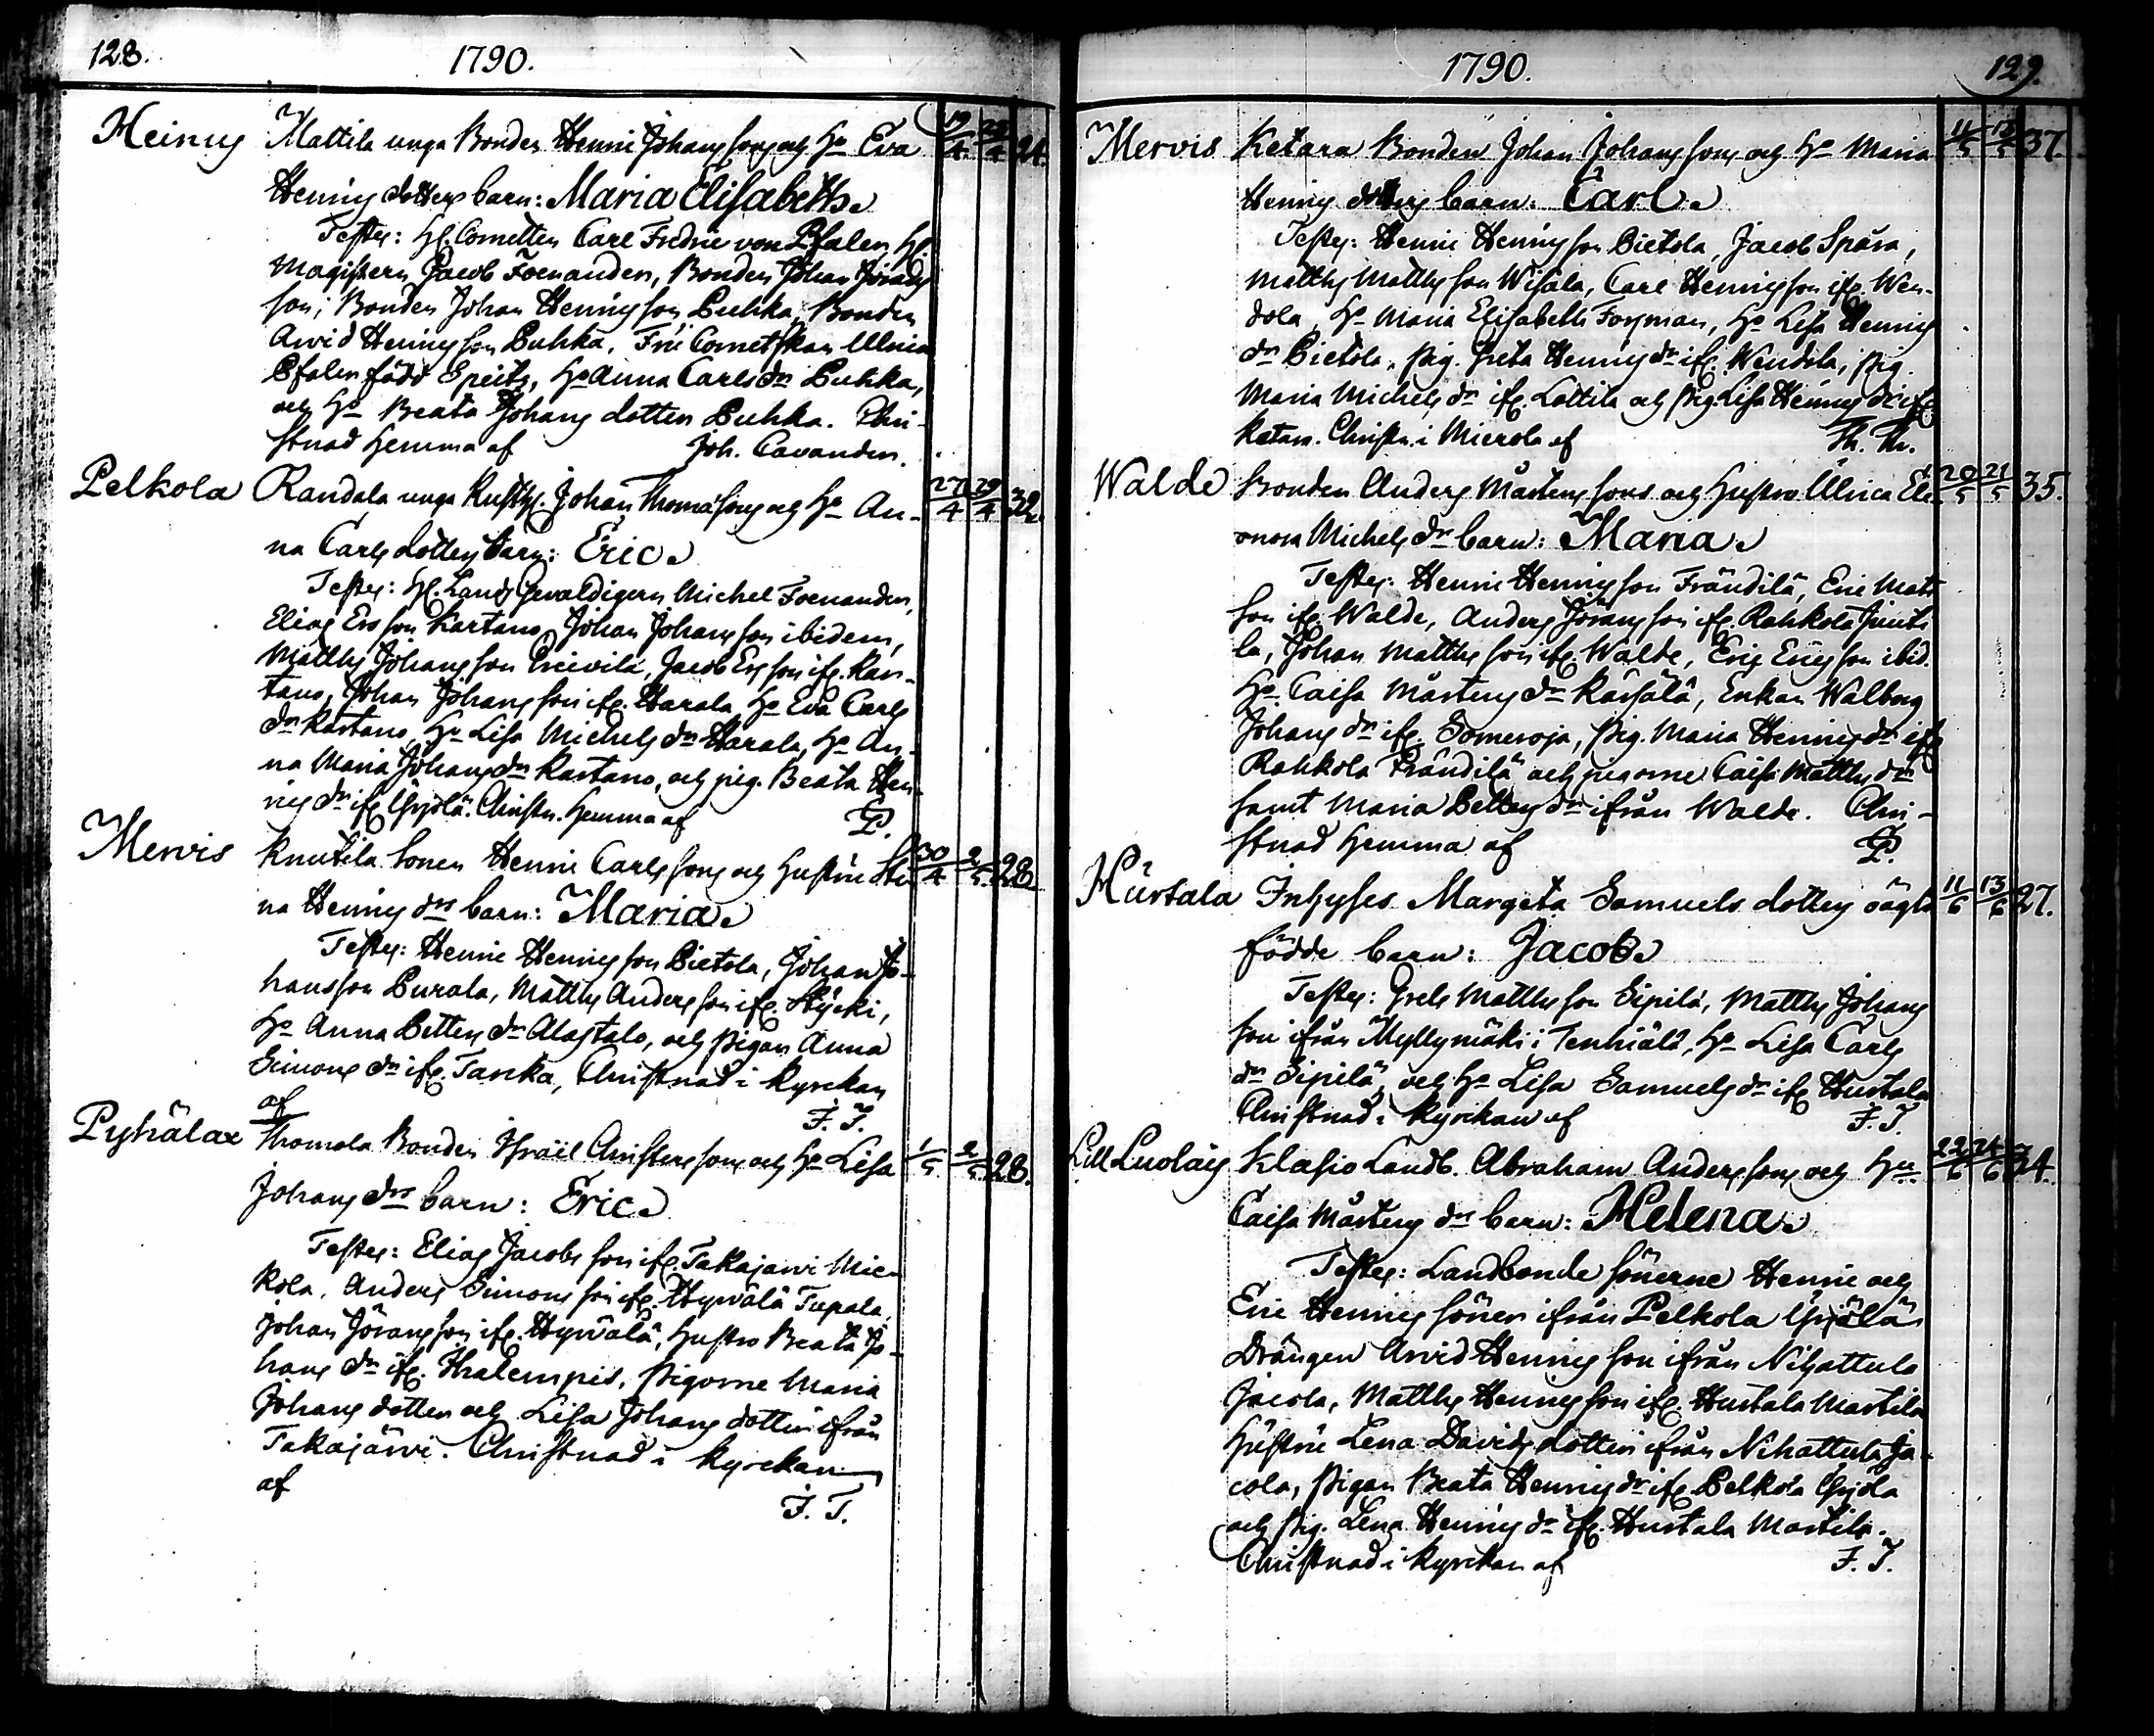 128.
1790.
Heinus Mattila unga Bonden Henric Johans sons och Ho Eva 19/4 25/4 24.
Henrics dotters barn: Maria Elisabeth.
Testes: H. Cornetten Carl Fredric von Pfaler, H.
Magistern Jacob Foenander, Bonden Johan Görans
son; Bonden Johan Henrics son Puhka, Bonden
Arvid Henrics son Puhka, Fru Cornetskan Ulrica
Pfaler född Speitz, Ho Anna Carls dr Puhka,
och Ho Beata Johans dotter Puhka. Chri-
stnad hemma af Joh. Cavander.
Pelkola Randala unga Rusth. Johan Thomæ sons och Ho An- 27/4 29/4 32.
na Carls dotters barn: Eric.
Testes: H. Lands Gevaldigern Michel Foenander,
Elias Ers son Kartano, Johan Johans son ibidem,
Matths Johans son, Jacob Ers son ifr. Kar-
tano, Johan Johans son ifr. Harala, Ho Eva Carls
dr Kartano, Ho Lisa Michels dr Harala, Ho An-
na Maria Johans dr Kartano, och pig. Beata Hen-
rics dr ifr. Yrjölä. Christn. hemma af P.
Mervis Knutila sonen Henric Carls sons och hustru Sti 30/4 2/5 28.
na Henrics drs barn: Maria.
Testes: Henric Henrics son Pietola, Johan Jo-
hansson Purala, Matths Anders son ifr. Stycki,
Ho Anna Petters dr Alastalo, och pigan Anna
Simons dr ifr. Tanka, Christnad i kyrckan
af F. T.
Pyhälax Thomola Bonden Israel Christers sons och Ho Lisa 1/5 2/5 28.
Johans drs barn: Eric.
Testes: Elias Jacobs son ifr. Takajärvi Mic-
kola, Anders Simons son ifr. Hyrvälä Tupala,
Johan Görans son ifr. Hyrvälä, hustro Beata Jo-
hans dr ifr. Thalempis, pigorne Maria
Johans dotter och Lisa Johans dotter ifrån
Takajärvi. Christnad i kyrckan
af
F. T.
1790.
129.
Mervis Ketara Bonden Johan Johans sons och Ho Maria 11/5 13/5 37.
Henrics dotters barn: Carl.
Testes: Henric Henrics son Pietola, Jacob Spåra,
Matths Matths son Wisala, Carl Henrics son ifr. Wen-
dola, Ho Maria Elisabeth Forsman, Ho Lisa Henrics
dr Pietola, pig. Greta Henrics dr ifr. Wendola, pig.
Maria Michels dr ifr. Lottila och pig. Lisa Henrics dr ifr.
Ketara. Christn. i Mierola af Th. Th.
Walde Bonden Anders Mårtens sons och hustro Ulrica Ele- 20/5 21/5 35.
onora Michels drs barn: Maria.
Testes: Henric Henrics son Frändilä, Eric Mats
son ifr. Walde, Anders Görans son ifr. Rahkola Junti
la, Johan Matths son ifr. Walde, Eric Erics son ibid.
Ho Caisa Mårtens dr Kärsälä, Enkan Walborg
Johans dr ifr. Someroja, pig. Maria Henrics dr ifr.
Rahkola Frändilä och pigorne Caisa Matths dr
samt Maria Petters dr ifrån Walde. Chri-
stnad hemma af P.
Hurtala Inhyses Margeta Samuels dotters oägta 11/6 13/6 27.
födde barn: Jacob.
Testes: Grels Matths son Sipilä, Matths Johans
son ifrån Myllymäki i Tenhiälä, Ho Lisa Carls
dr Sipilä, och Ho Lisa Samuels dr ifr. Hurtala
Christnad i kyrckan af F. T.
Lill Luolais Klasio Landb. Abraham Anders sons och Hu 22/6 24/6 34.
Caisa Mårtens drs barn: Helena.
Testes: Landbonde sönerne Henric och
Eric Henrics söner ifrån Pelkola Yrjälä
Drängen Arvid Henrics son ifrån Nihattula
Jacola, Matths Henrics son ifr. Hurtala Martila
Hustru Lena Davids dotter ifrån Nihattula Ja-
cola, pigan Beata Henrics dr ifr. Pelkola Yrjola
och pig. Lena Henrics dr ifr. Hurtala Martila.
Christnad i kyrckan af F. T.